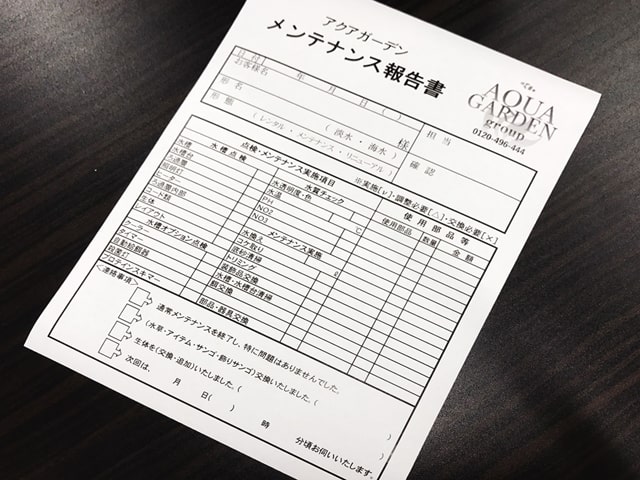 アクアガーデン
メンテナンス報告書
AQUA
GARDEN
group
0120-496-444
日付 年 月 日 ( )
お客様名 様
担当
形名 (淡水・海水)
形態 (レンタル・メンテナンス・リニューアル)
確認
点検・メンテナンス実施項目 ※実施[レ]・調整必要[△]・交換必要[×]
水槽点検 水質チェック 使用部品等
使用部品 数量 金額
水槽 水透明度・色
水槽台 水温 C
ろ過装置 PH
照明灯 NO2
ヒーター NO3
ろ過装置内部 メンテナンス実施
コード類 水換え
生体 コケ取り
レイアウト 底砂清掃
水槽オプション点検 トリミング
クーラー 装飾品交換
タイマー 水槽・水槽台清掃
自動給餌器 餌交換
殺菌灯
プロテインスキマー 部品・器具交換
<連絡事項>
通常メンテナンスを終了し、特に問題はありませんでした。
(水草・アイテム・サンゴ・飾りサンゴ)交換いたしました。( )
生体を(交換・追加)いたしました。( )
次回は、 月 日( ) 時 分頃お伺いいたします。